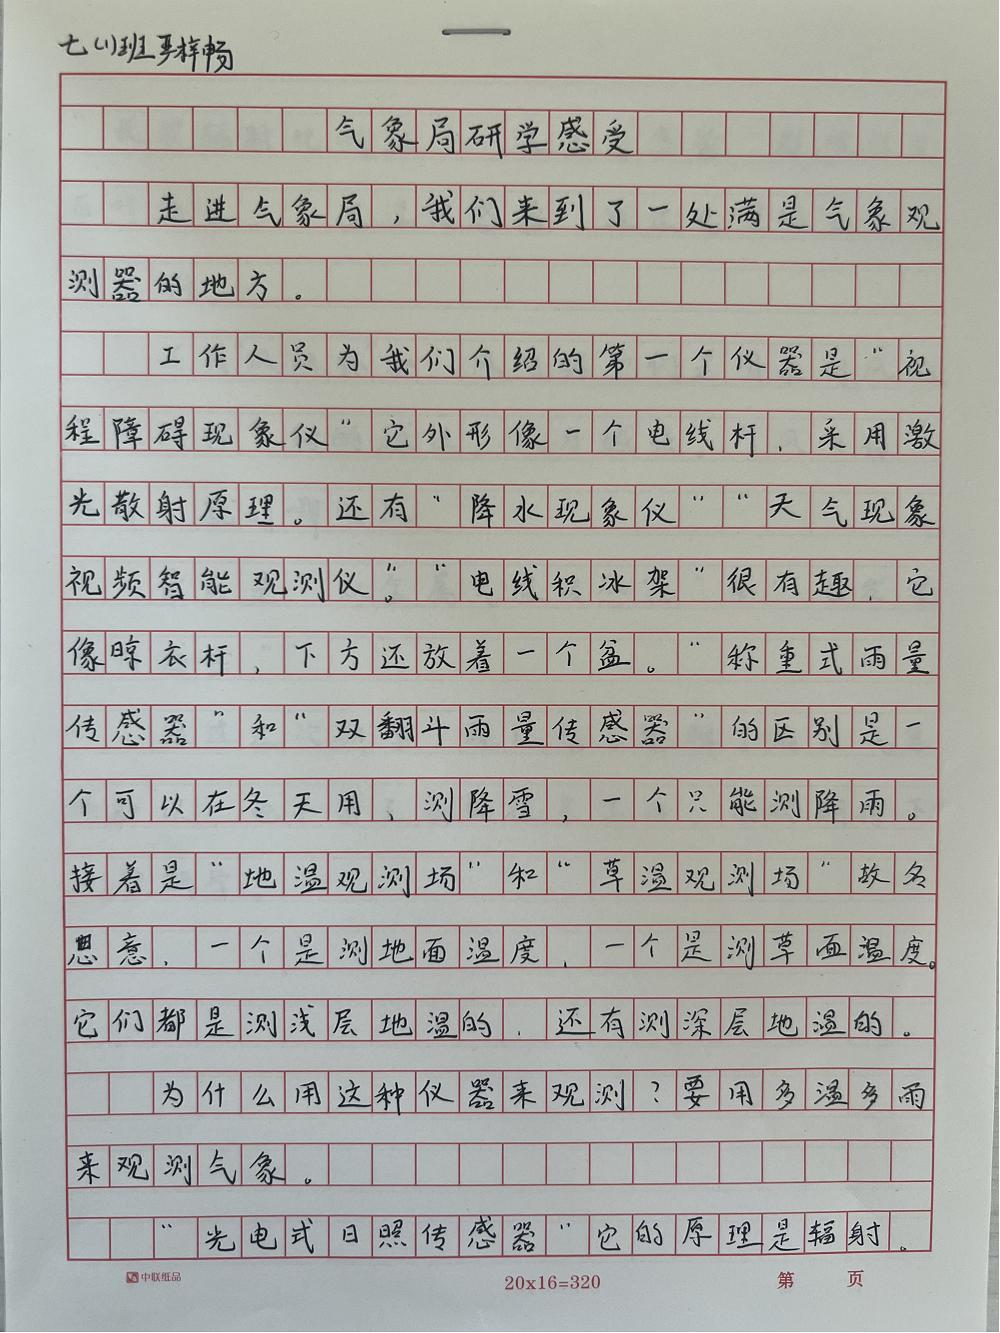 七(1)班 梓畅
气象局研学感受
走进气象局,我们来到了一处满是气象观
测器的地方。
工作人员为我们介绍的第一个仪器是“视
程障碍现象仪”它外形像一个电线杆,采用激
光散射原理。还有“降水现象仪”“天气现象
视频智能观测仪”。“电线积冰架”很有趣,它
像晾衣杆,下方还放着一个盆。“称重式雨量
传感器”和“双翻斗雨量传感器”的区别是一
个可以在冬天用,测降雪,一个只能测降雨。
接着是“地温观测场”和“草温观测场”故名
思意,一个是测地面温度,一个是测草面温度。
它们都是测浅层地温的,还有测深层地温的。
为什么用这种仪器来观测?要用多温多雨
来观测气象。
“光电式日照传感器”它的原理是辐射。
中联纸品
20x16=320
第 页